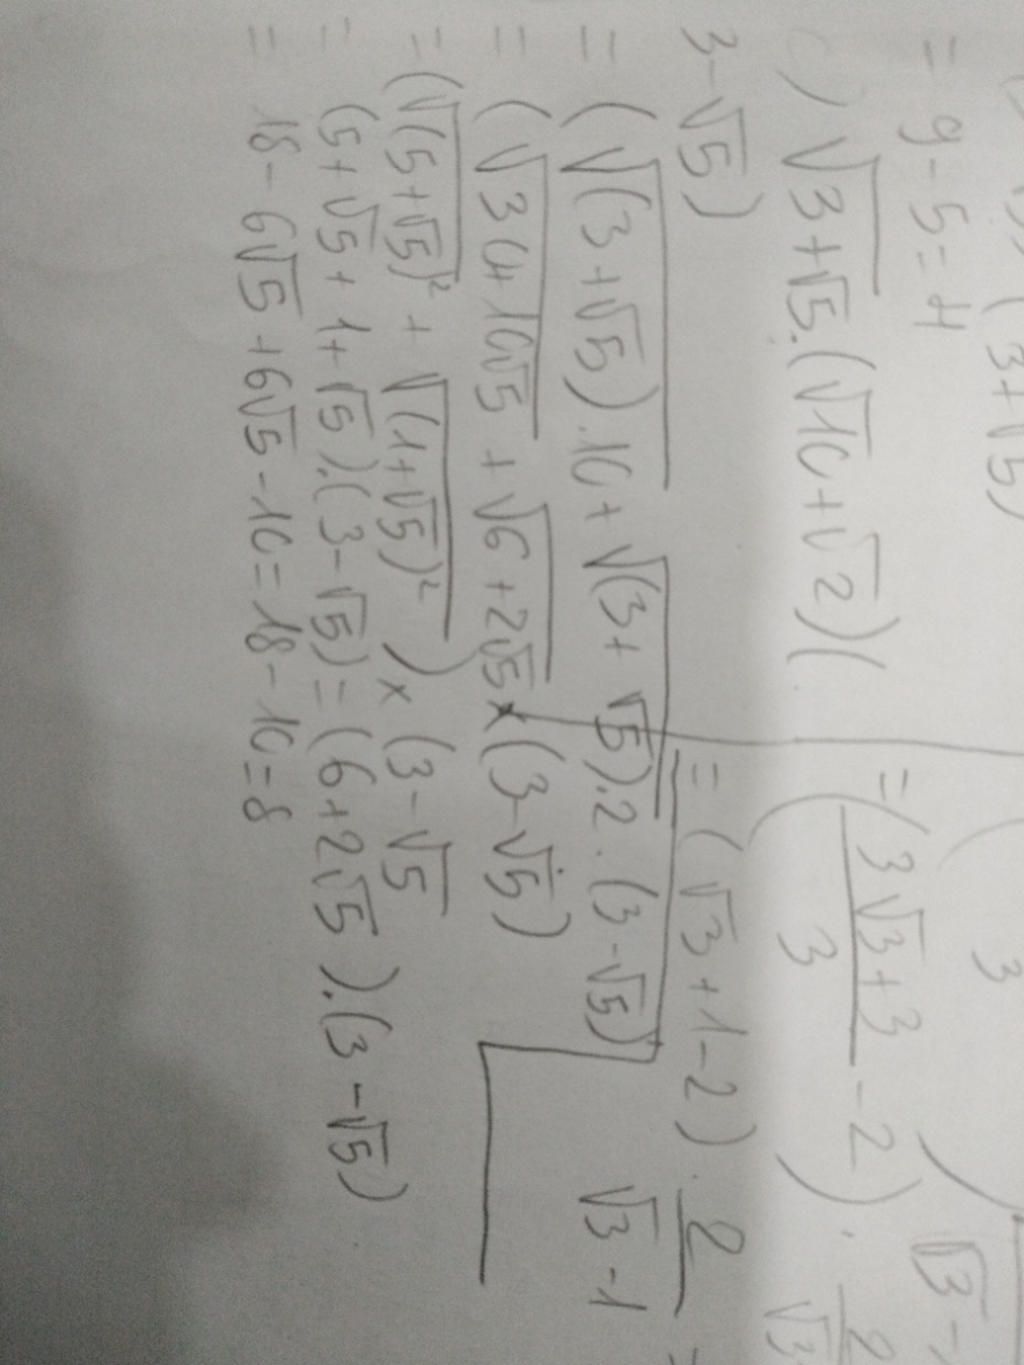 (3+√5)
= 9-5=4
c) √(3+√5).(√10+√2)(
3-√5)
= (√((3+√5).10) + √((3+√5).2) . (3-√5)
= (√(30+10√5) + √(6+2√5) × (3-√5)
= (√((5+√5)²) + √((1+√5)²)) × (3-√5
= (5+√5+1+√5).(3-√5) = (6+2√5).(3-√5)
= 18-6√5+6√5-10=18-10=8
3
= ((3√3+3)/3 -2).
= (√3+1-2). 2/(√3-1)